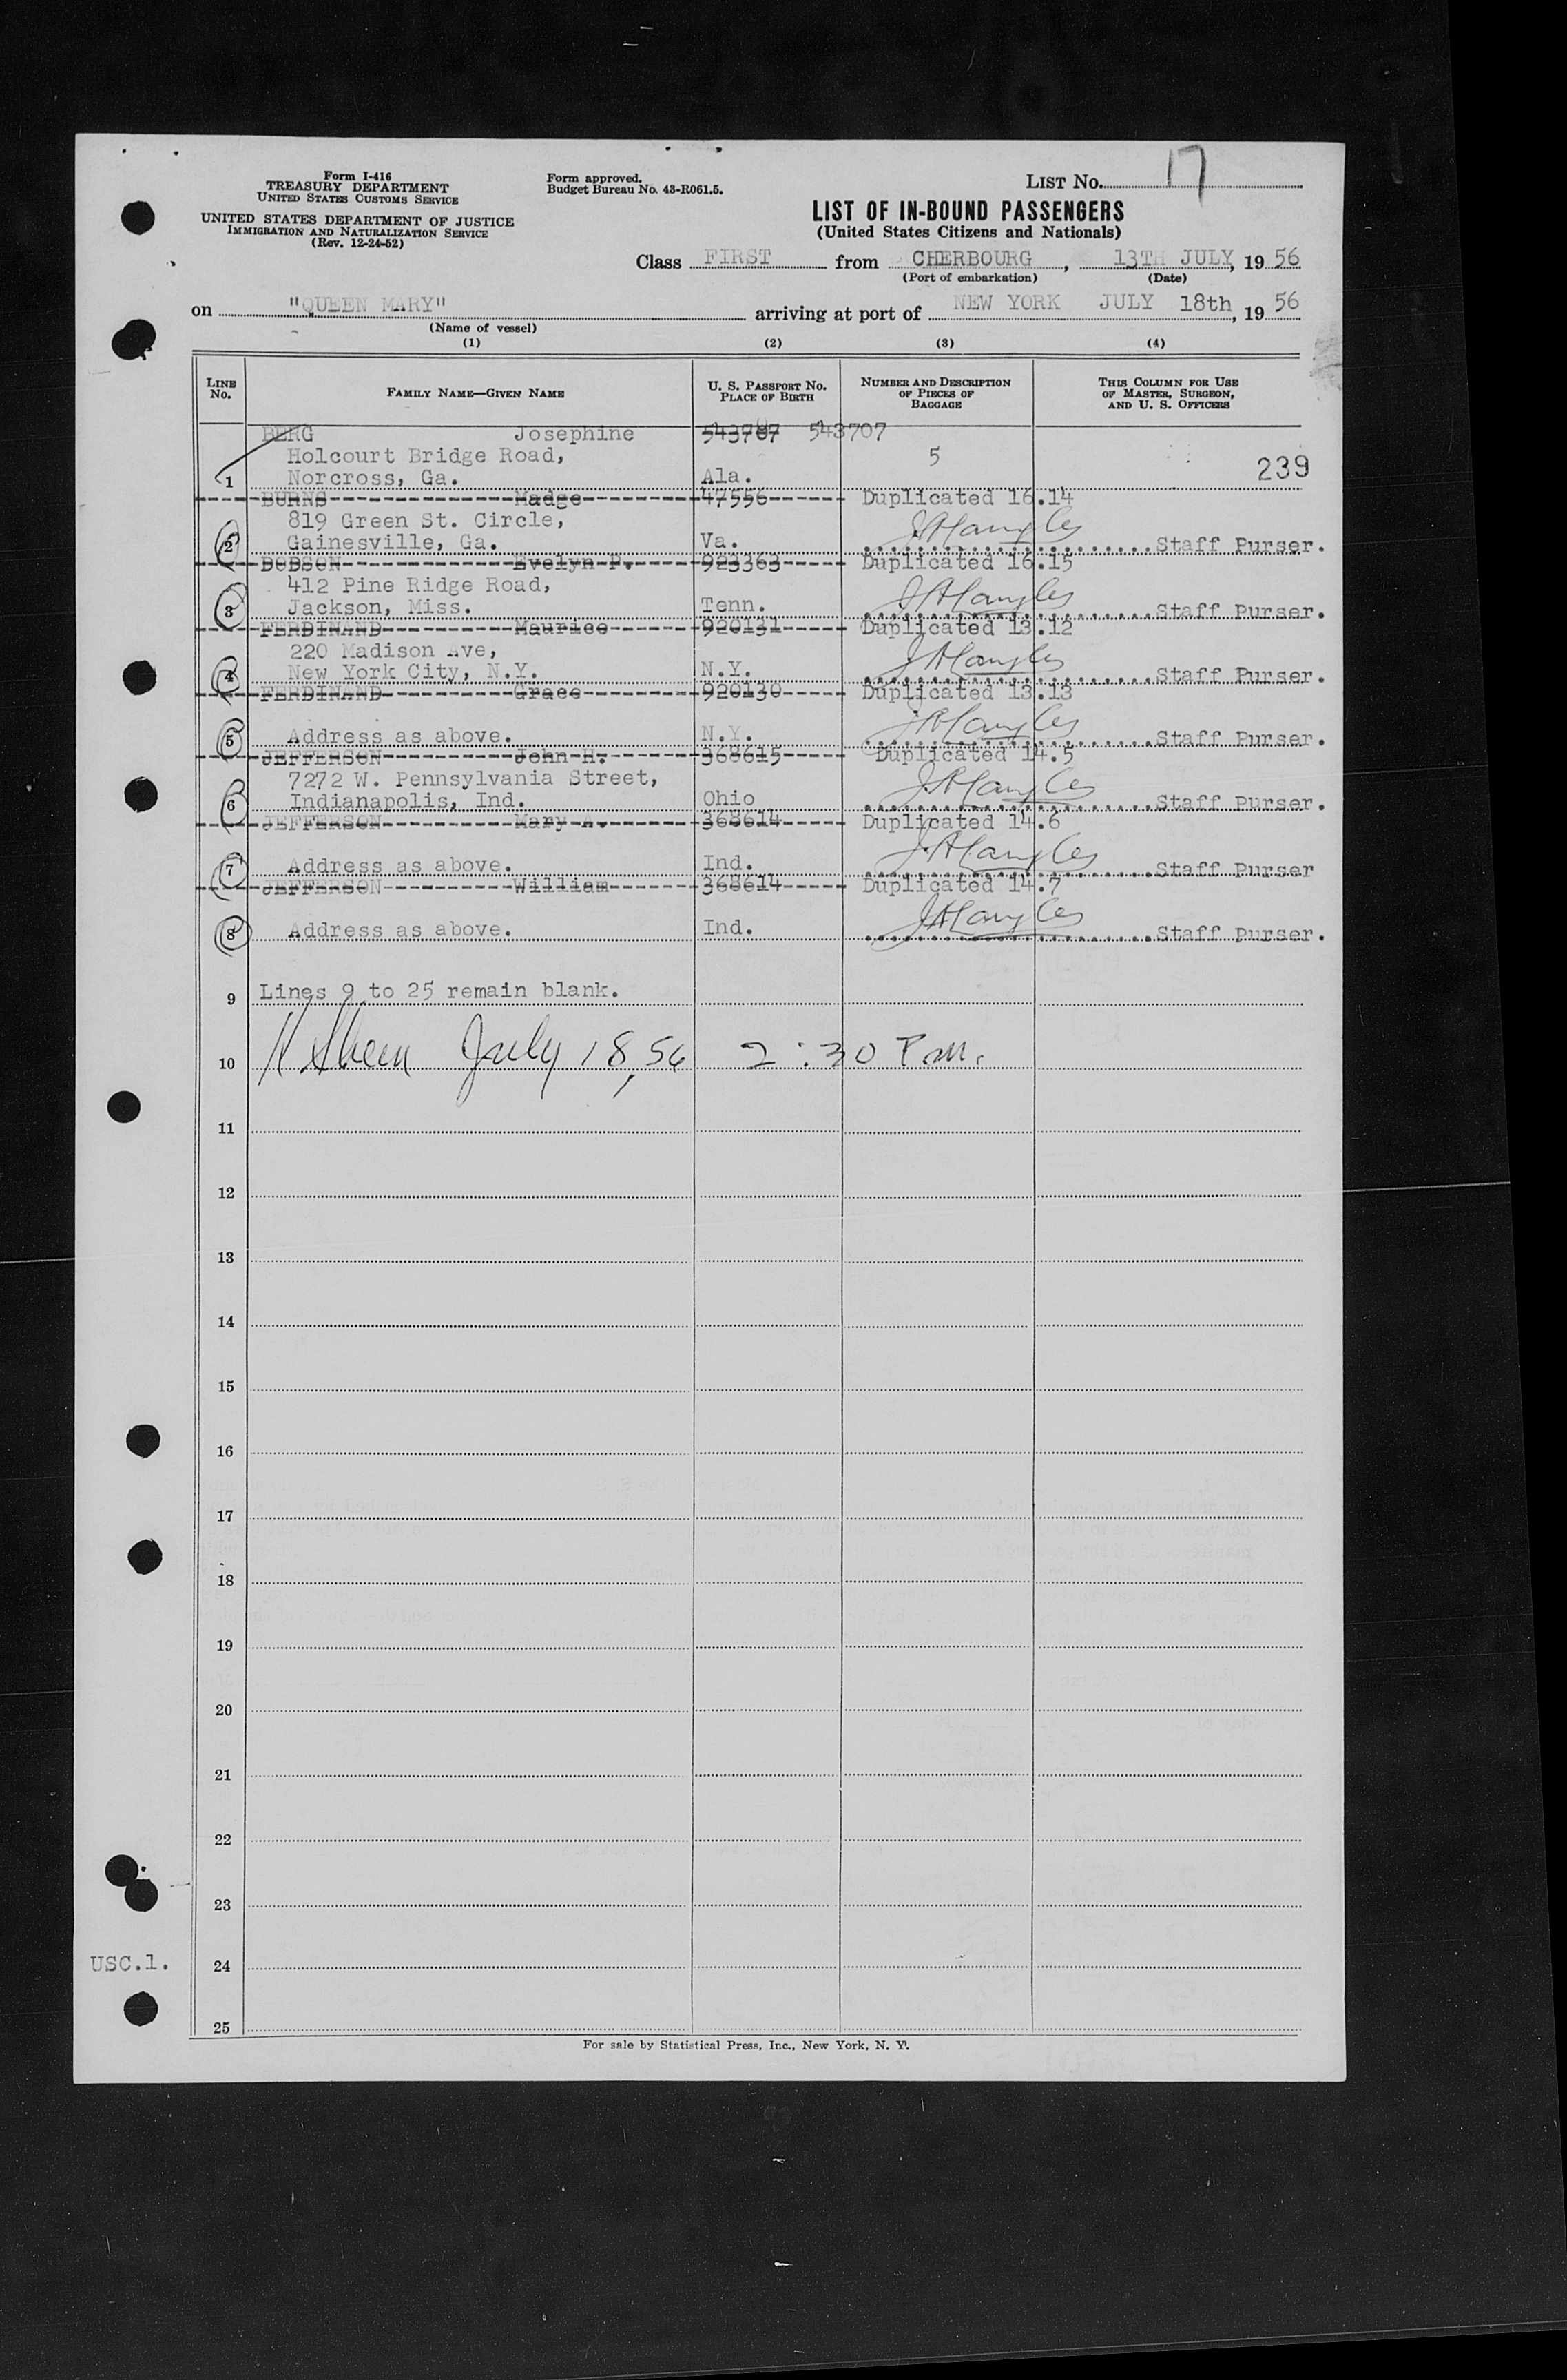 Form I-416
TREASURY DEPARTMENT
UNITED STATES CUSTOMS SERVICE
UNITED STATES DEPARTMENT OF JUSTICE
IMMIGRATION AND NATURALIZATION SERVICE
(Rev. 12-24-52)
Form approved.
Budget Bureau No. 43-R061.5.
LIST No. 17
LIST OF IN-BOUND PASSENGERS
(United States Citizens and Nationals)
Class FIRST from CHERBOURG, 13TH JULY, 19 56
(Port of embarkation) (Date)
on "QUEEN MARY" arriving at port of NEW YORK JULY 18th, 19 56
(Name of vessel)
(1) (2) (3) (4)
LINE No. FAMILY NAME—GIVEN NAME U. S. PASSPORT No. PLACE OF BIRTH NUMBER AND DESCRIPTION OF PIECES OF BAGGAGE THIS COLUMN FOR USE OF MASTER, SURGEON, AND U. S. OFFICERS
BERG Josephine 543707
Holcourt Bridge Road, 5
1 Norcross, Ga. Ala. 239
BURNS Madge 47556 Duplicated 16.14
819 Green St. Circle,
2 Gainesville, Ga. Va. Staff Purser.
DODSON Evelyn P. 923363 Duplicated 16.15
412 Pine Ridge Road,
3 Jackson, Miss. Tenn. Staff Purser.
FERDINAND Maurice 920131 Duplicated 13.12
220 Madison Ave,
4 New York City, N.Y. N.Y. Staff Purser.
FERDINAND Grace 920130 Duplicated 13.13
5 Address as above. N.Y. Staff Purser.
JEFFERSON John H. 368615 Duplicated 14.5
7272 W. Pennsylvania Street,
6 Indianapolis, Ind. Ohio Staff Purser.
JEFFERSON Mary A. 368614 Duplicated 14.6
7 Address as above. Ind. Staff Purser
JEFFERSON William 368614 Duplicated 14.7
8 Address as above. Ind. Staff Purser.
9 Lines 9 to 25 remain blank.
10 July 18, 56 2:30 P.M.
11
12
13
14
15
16
17
18
19
20
21
22
23
USC.1. 24
25
For sale by Statistical Press, Inc., New York, N. Y.